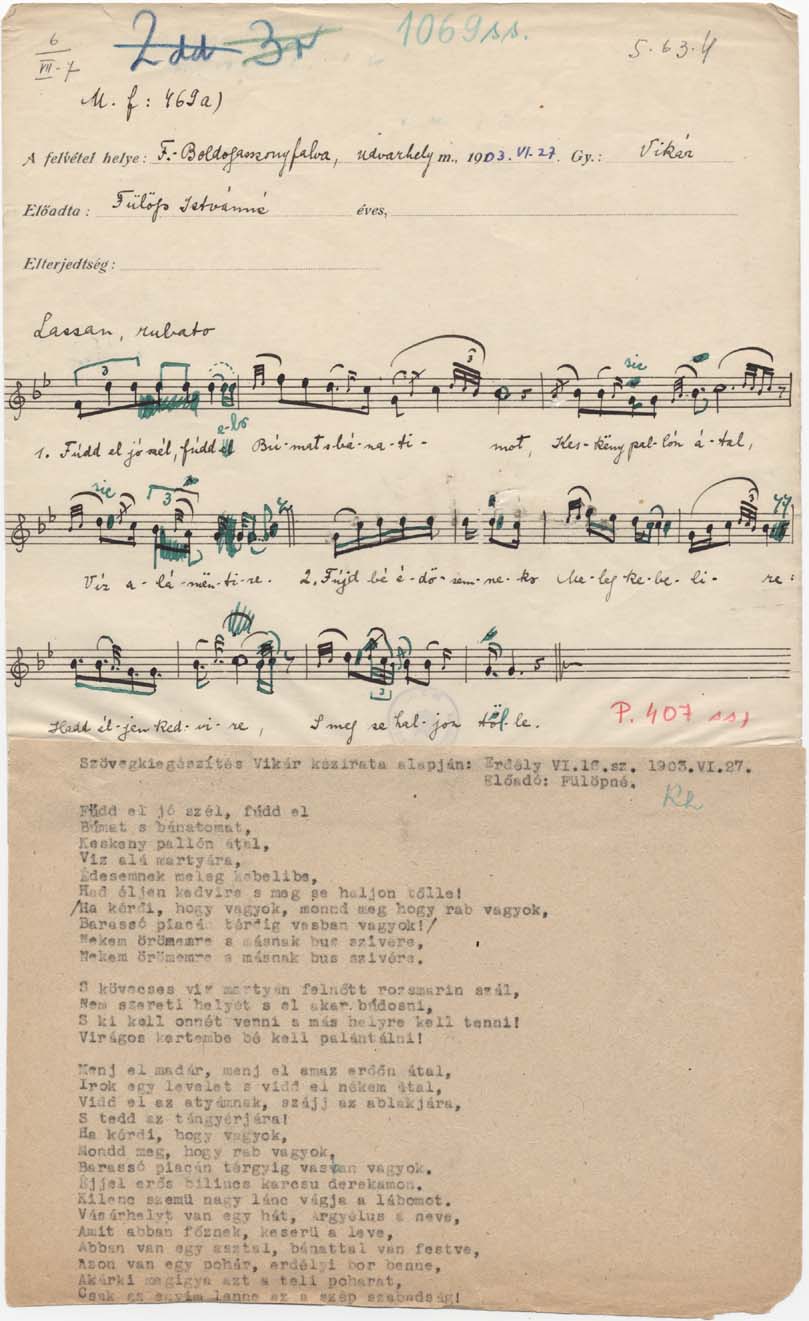 6
VII-7
2dd 3r
1069 ss.
5. 63. 4
M. f: 769a)
A felvétel helye: F.-Boldogasszonyfalva, Udvarhely m., 1903. VI. 27. Gy.: Vikár
Előadta: Fülöp Istvánné éves,
Elterjedtség:
Lassan, rubato
3 3 sic
1. Fúdd el jó szél, fúdd el Bú-mat s bá-na-ti- mot, Kes-këny pal-lón á-tal,
sic 3
Víz a-lá-mën-ti-re. 2. Fújd bé é-dö-sem-ne-ko Me-leg ke-be-li- re:
Hadd él-jen ked-vi-re, S meg se hal-jon től-le.
P. 407 ss)
Szövegkiegészítés Vikár kézirata alapján: Erdély VI.16.sz. 1903.VI.27.
Előadó: Fülöpné.
Rk
Fúdd el jó szél, fúdd el
Búmat s bánatomat,
Keskeny pallón átal,
Viz alá martyára,
Édesemnek meleg kebelibe,
Had éljen kedvire s meg se haljon tőlle!
/Ha kérdi, hogy vagyok, monnd meg hogy rab vagyok,
Barassó piacán térdig vasban vagyok!/
Nekem örömemre s másnak bus szivére,
Nekem örömemre s másnak bus szivére.
S kövecses viz martyán felnőtt rozsmarin szál,
Nem szereti helyét s el akar búdosni,
S ki kell onnét venni a más helyre kell tenni!
Virágos kertembe bé kell palántálni!
Menj el madár, menj el amaz erdőn átal,
Irok egy levelet s vidd el nékem átal,
Vidd el az atyámnak, szájj az ablakjára,
S tedd az tángyérjára!
Ha kérdi, hogy vagyok,
Mondd meg, hogy rab vagyok,
Barassó piacán térgyig vasban vagyok.
Éjjel erős bilincs karcsu derekamon.
Kilenc szemü nagy lánc vágja a lábomot.
Vásárhelyt van egy hát, Argyélus a neve,
Amit abban főznek, keserü a leve,
Abban van egy asztal, bánattal van festve,
Azon van egy pohár, erdélyi bor benne,
Akárki megigya azt a teli poharat,
Csak az enyim lenne az a szép szabadság!